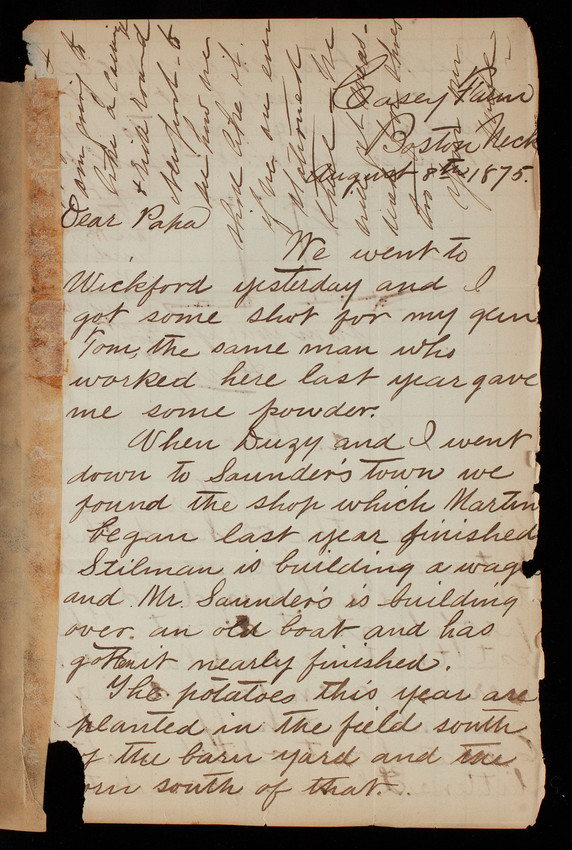 Casey Farm
Boston Neck
August 8th 1875.
Dear Papa
We went to
Wickford yesterday and I
got some shot for my gun
Tom, the same man who
worked here last year gave
me some powder.
When Duzy and I went
down to Saunder's town we
found the shop which Martin
began last year finished
Stilman is building a wag
and Mr. Saunder's is building
over an old boat and has
got it nearly finished.
The potatoes this year are
planted in the field south
of the barn yard and the
orn south of that.
I am going to
take a
+ sick round
Newport to
see how we
shall like it.
if you